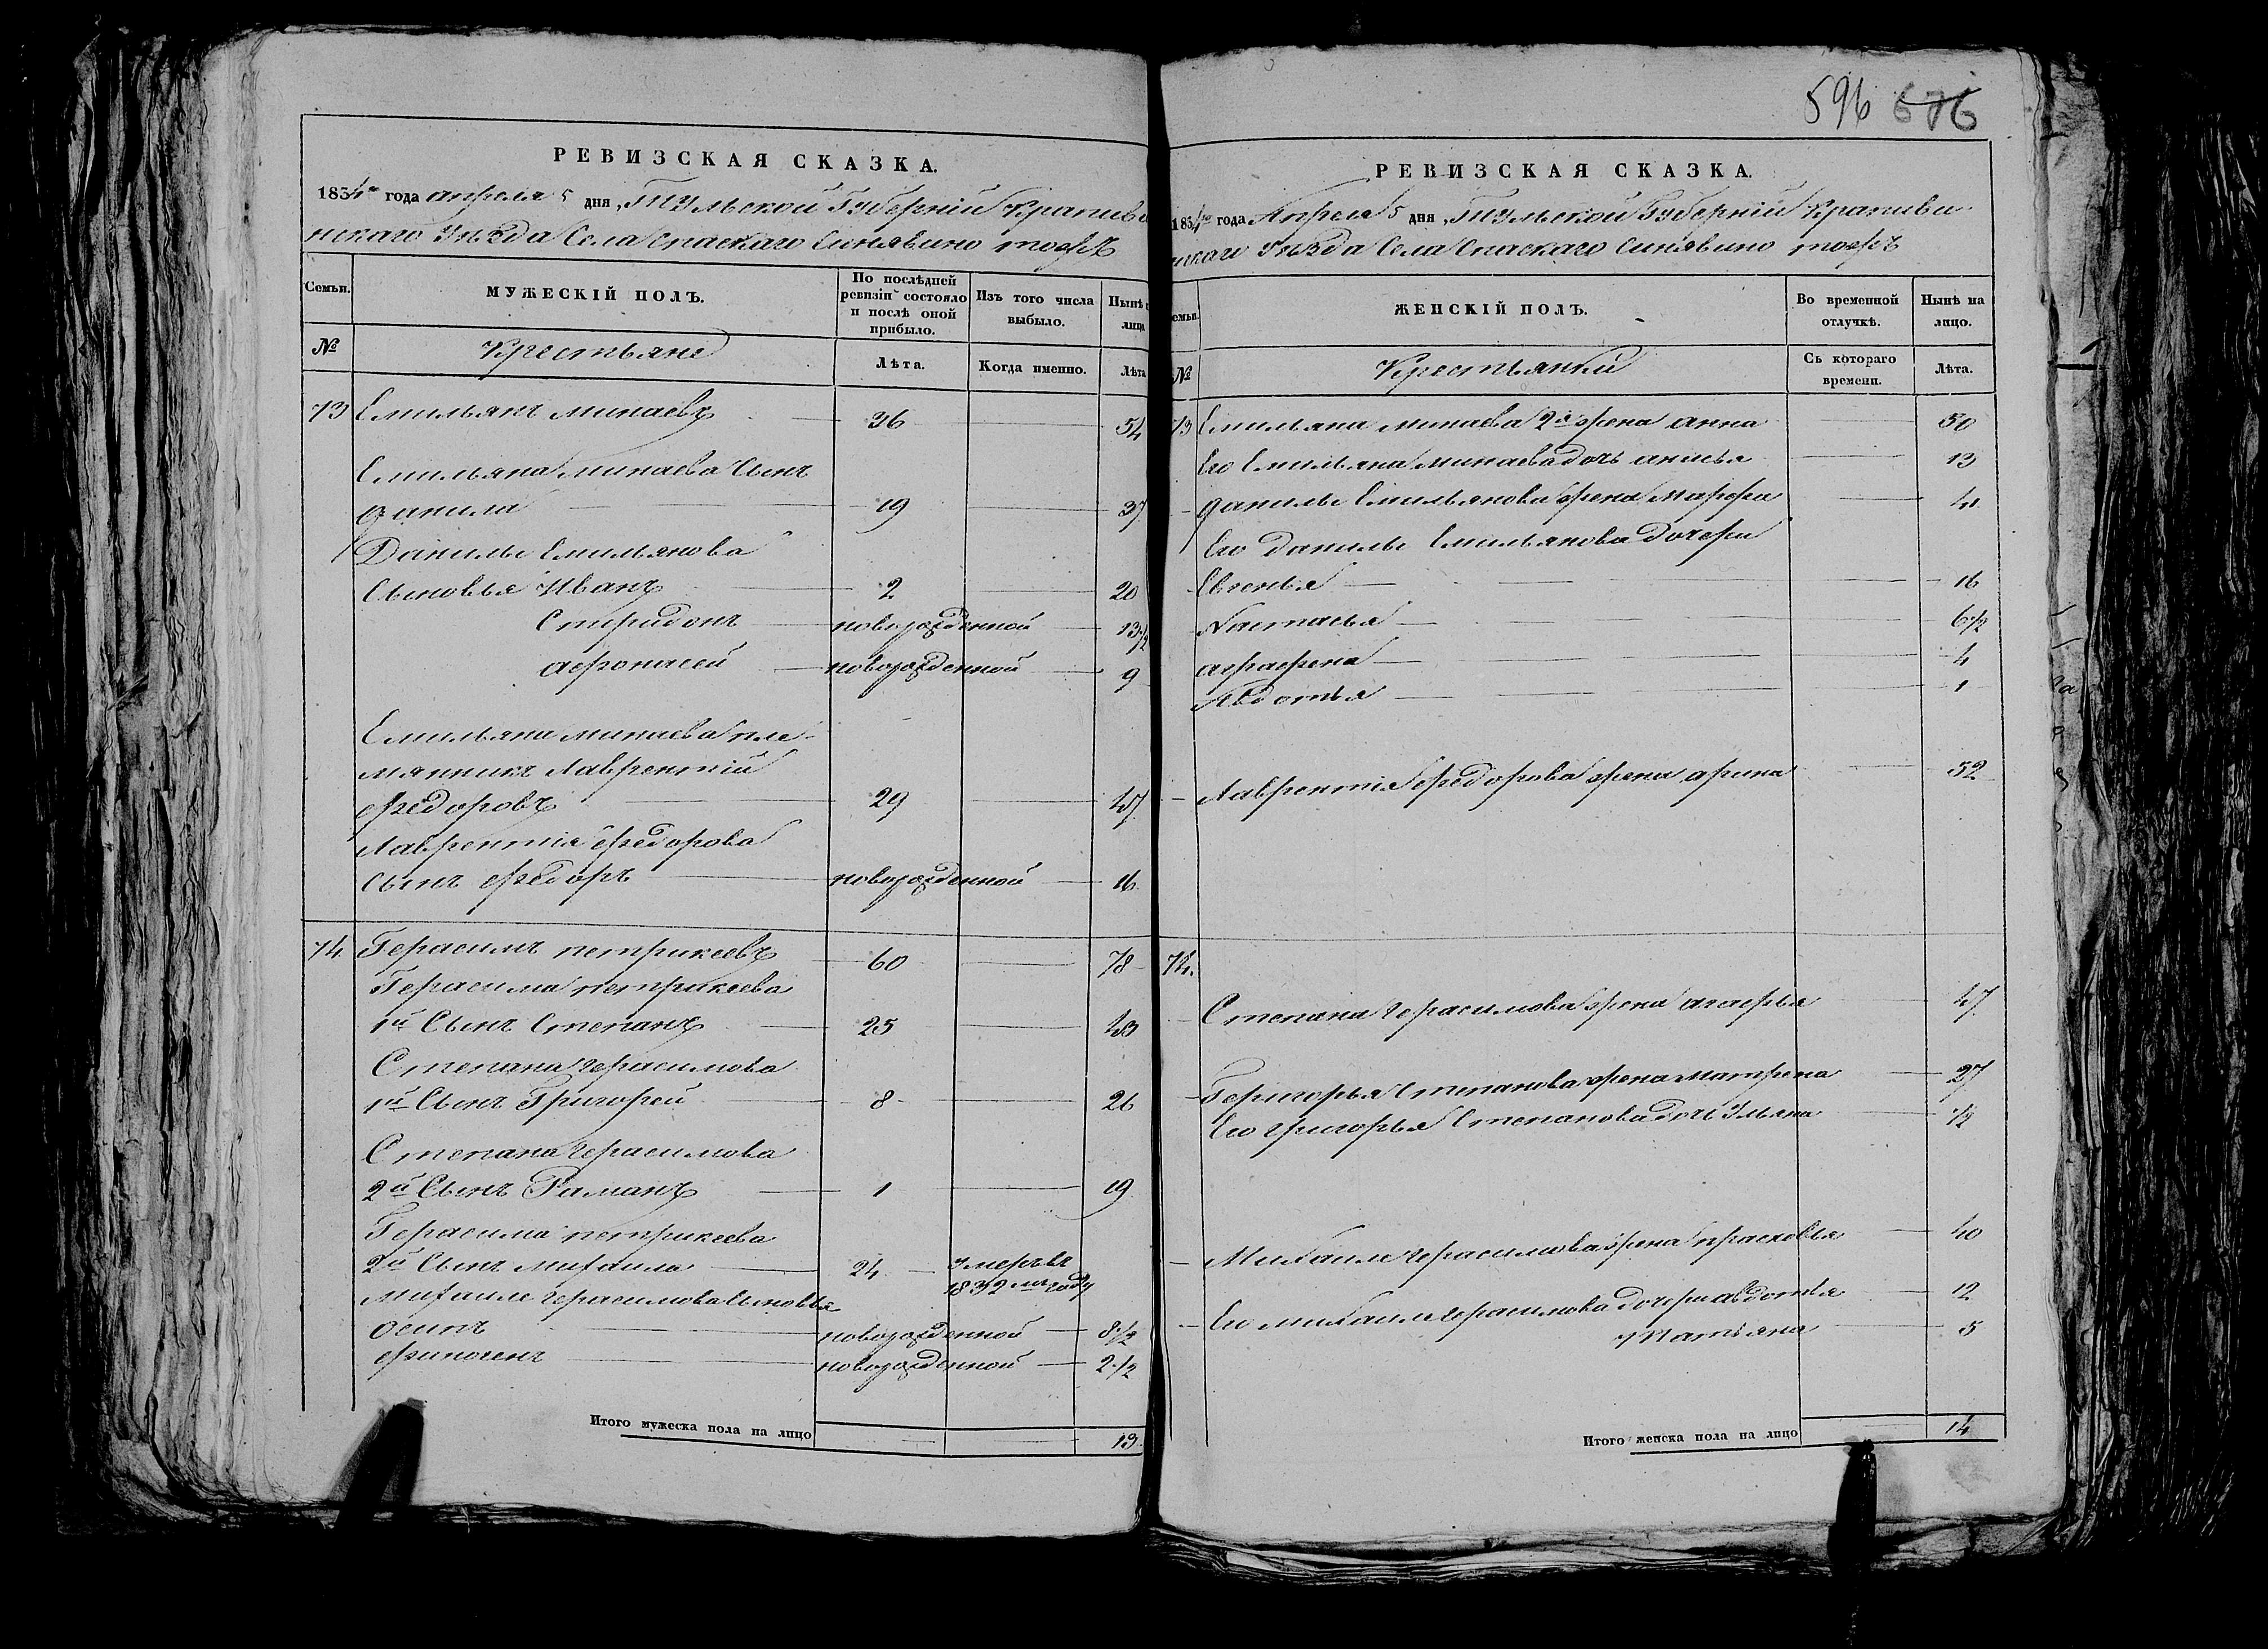 РЕВИЗСКАЯ СКАЗКА.
1834го года апреля 5 дня, Тульской Губерніи Крапиве
нскаго Уѣзда Села Спаскаго Синявино тожъ
Семьи.
МУЖЕСКІЙ ПОЛЪ.
По послѣдней ревизіи состояло и послѣ оной прибыло.
Изъ того числа выбыло.
Нынѣ
лица
№
Крестьяне
Лѣта.
Когда именно.
Лѣта
73 Емильянъ минаевъ 36 54
Емильяна минаева Сынъ
данила 19 37
Данилы Емильянова
Сыновья Иванъ 2 20
Спиридонъ новорожденной 13 1/2
афонасей новорожденной 9
Емильяна минаева пле-
мянникъ Лаврентій
федоровъ 29 47
Лаврентія федорова
сынъ федоръ новорожденной 16
74 Герасимъ петрикеевъ 60 78
Герасима петрикеева
1й Сынъ Степанъ 25 43
Степана герасимова
1й Сынъ Григорей 8 26
Степана герасимова
2й Сынъ Раманъ 1 19
Герасима петрикеева
2й Сынъ михаила 24 умеръ въ
1832мъ году
михаиле герасимова Сыновья
Осипъ новорожденной 8 1/2
финогенъ новорожденной 2 1/2
Итого мужеска пола на лицо 13
596 676
РЕВИЗСКАЯ СКАЗКА.
1834го года Апреля 5 дня, Тульской Губерніи Крапиви
нскаго Уѣзда Села Спаскаго Синявино тожъ
емьи.
ЖЕНСКІЙ ПОЛЪ.
Во временной отлучкѣ.
Нынѣ на лицо.
№
Крестьянки
Съ котораго времени.
Лѣта.
73 Емильяна минаева 2я жена анна 50
Его Емильяна минаева дочь анисья 13
данилы Емильянова жена марфа 41
Его данилы Емильянова дочери
Евгенья 16
Настасья 6 1/2
аграфена 4
Авдотья 1
Лаврентія федорова жена арина 52
74.
Степана герасимова жена агафья 47
Геригорья Степанова жена матрена 27
Его григорья Степанова дочь Ульяна 1/2
Михаиле герасимова жена прасковья 40
Ево михаиле герасимова дочери авдотья 12
татьяна 5
Итого женска пола на лицо 14